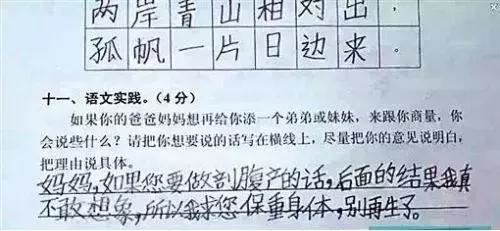 两岸青山相对出，
孤帆一片日边来。
十一、语文实践。（4分）
如果你的爸爸妈妈想再给你添一个弟弟或妹妹，来跟你商量，你
会说些什么？请把你想要说的话写在横线上，尽量把你的意见说明白，
把理由说具体。
妈妈，如果您要做剖腹产的话，后面的结果我真
不敢想象，所以我求您保重身体，别再生了。